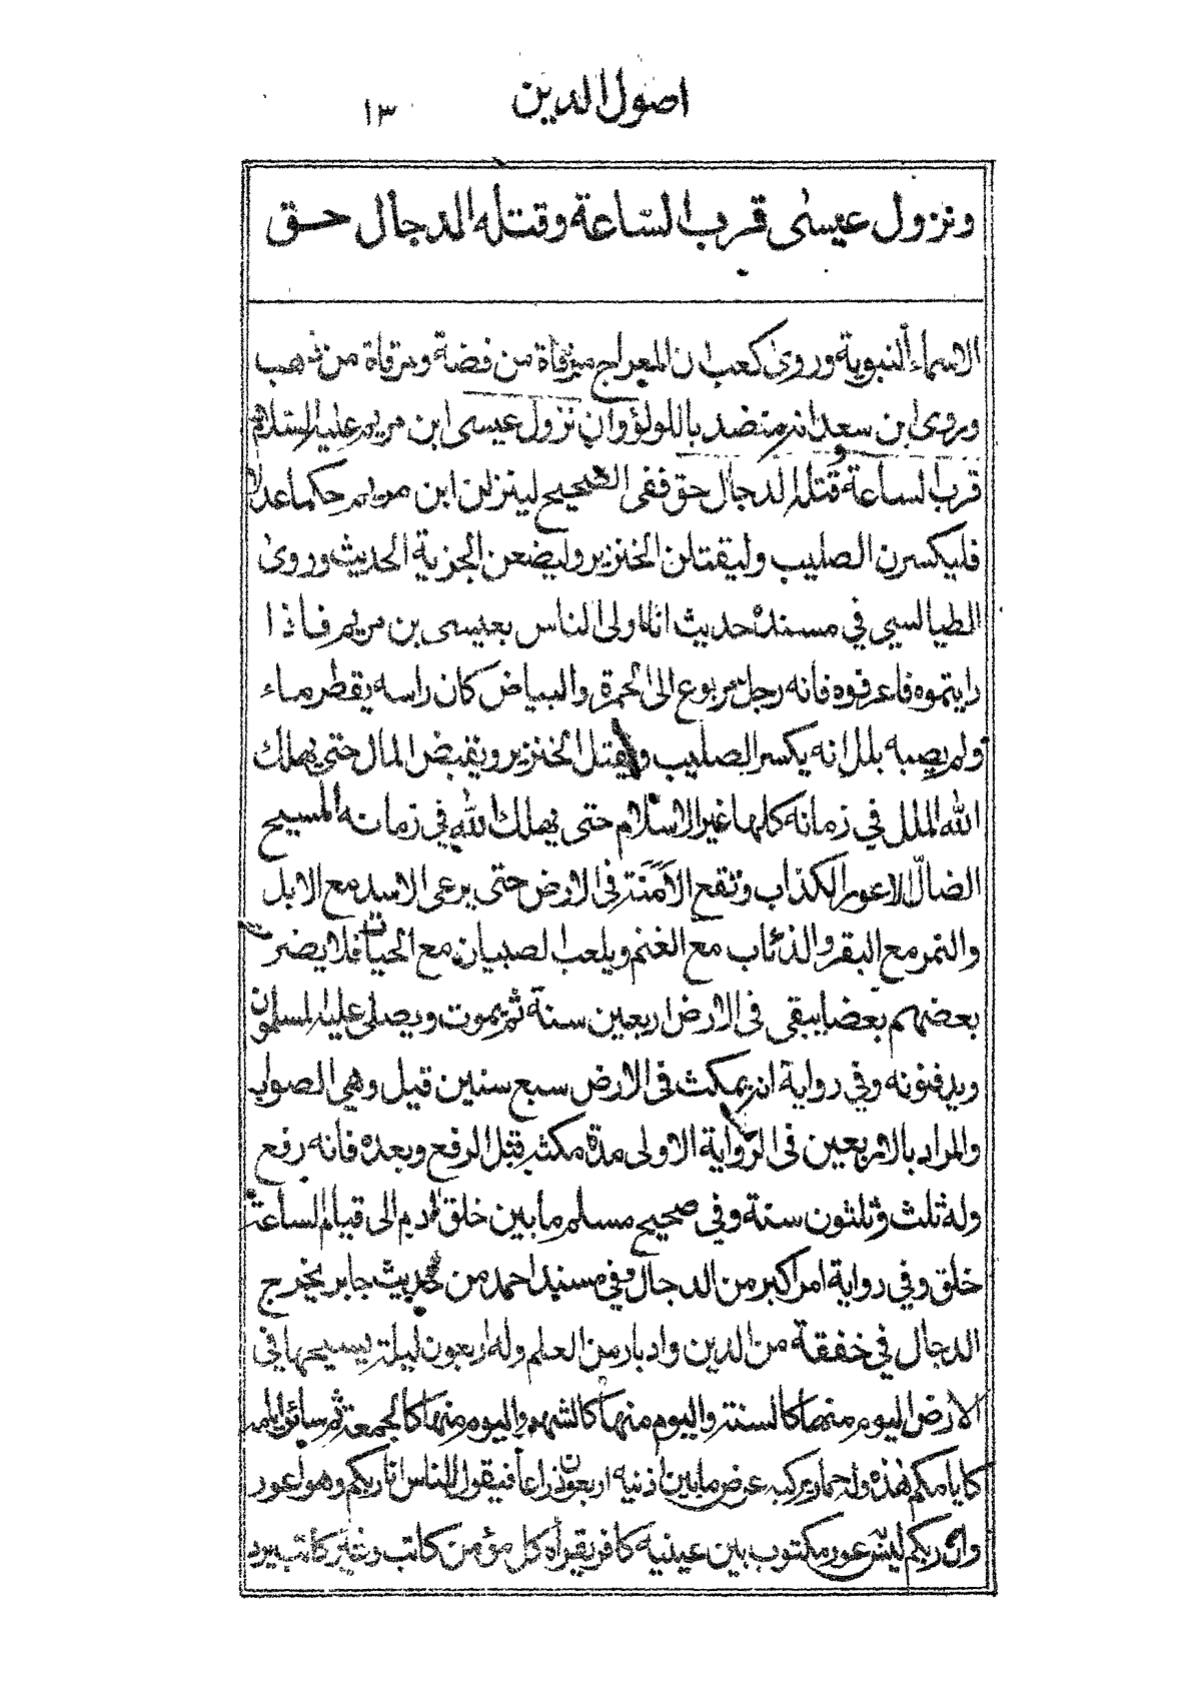 اصول الدين
١٣
ونزول عيسى قرب السّاعة وقتله الدجال حق
الاسماء النبوية وروى كعب ان المعراج مرقاة من فضة ومرقاة من ذهب
وروى ابن سعد انه منضد باللولؤ وان نزول عيسى ابن مريم عليه السّلام
قرب الساعة وقتله الدجال حق ففى الصحيح لينزلن ابن مريم حكما عدلا
فليكسرن الصليب وليقتلن الخنزير وليضعن الجزية الحديث وروى
الطيالسي في مسنده حديث انا اولى الناس بعيسى بن مريم فاذا
رايتموه فاعرفوه فانه رجل مربوع الى الحمرة والبياض كان راسه يقطر ماء
ولم يصبه بلل انه يكسر الصليب ويقتل الخنزير ويقبض المال حتى يهلك
الله الملل في زمانه كلها غير الاسلام حتى يهلك الله في زمانه المسيح
الضالّ الاعور الكذاب وتقع الاَمَنَة في الارض حتى يرعى الاسد مع الابل
والنمر مع البقر والذئاب مع الغنم ويلعب الصبيان مع الحيات فلا يضر
بعضهم بعضا يبقى في الارض اربعين سنة ثم يموت ويصلى عليه المسلمون
ويدفنونه وفي رواية انه يمكث في الارض سبع سنين قيل وهي الصواب
والمراد بالاربعين في الرواية الاولى مدة مكثه قبل الرفع وبعده فانه رفع
وله ثلث وثلثون سنة وفي صحيح مسلم ما بين خلق ادم الى قيام الساعة
خلق وفي رواية امر اكبر من الدجال وفي مسند احمد من حديث جابر يخرج
الدجال في خفقة من الدين وادبار من العلم وله اربعون ليلة يسيحها في
الارض اليوم منها كالسنة واليوم منها كالشهر واليوم منها كالجمعة ثم سائر ايامه
كايامكم هذه وله حمار يركبه عرض ما بين اذنيه اربعون ذراعا فيقول للناس انا ربكم وهو اعور
وان ربكم ليس عور مكتوب بين عينيه كافر يقرأه كل مؤمن كاتب وغير كاتب يرد